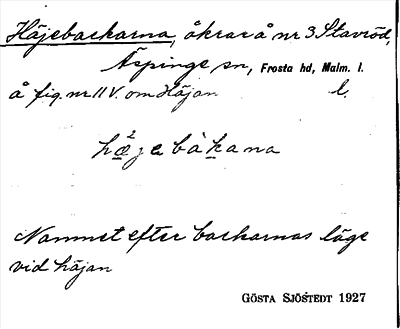 Häjebackarna, åkrar å nr 3 Stavröd,
Äspinge sn, Frosta hd, Malm. l.
å fig. nr 11 V. om Häjan l.
hæ²jebàkana
Namnet efter backarnas läge
vid häjan
GÖSTA SJÖSTEDT 1927